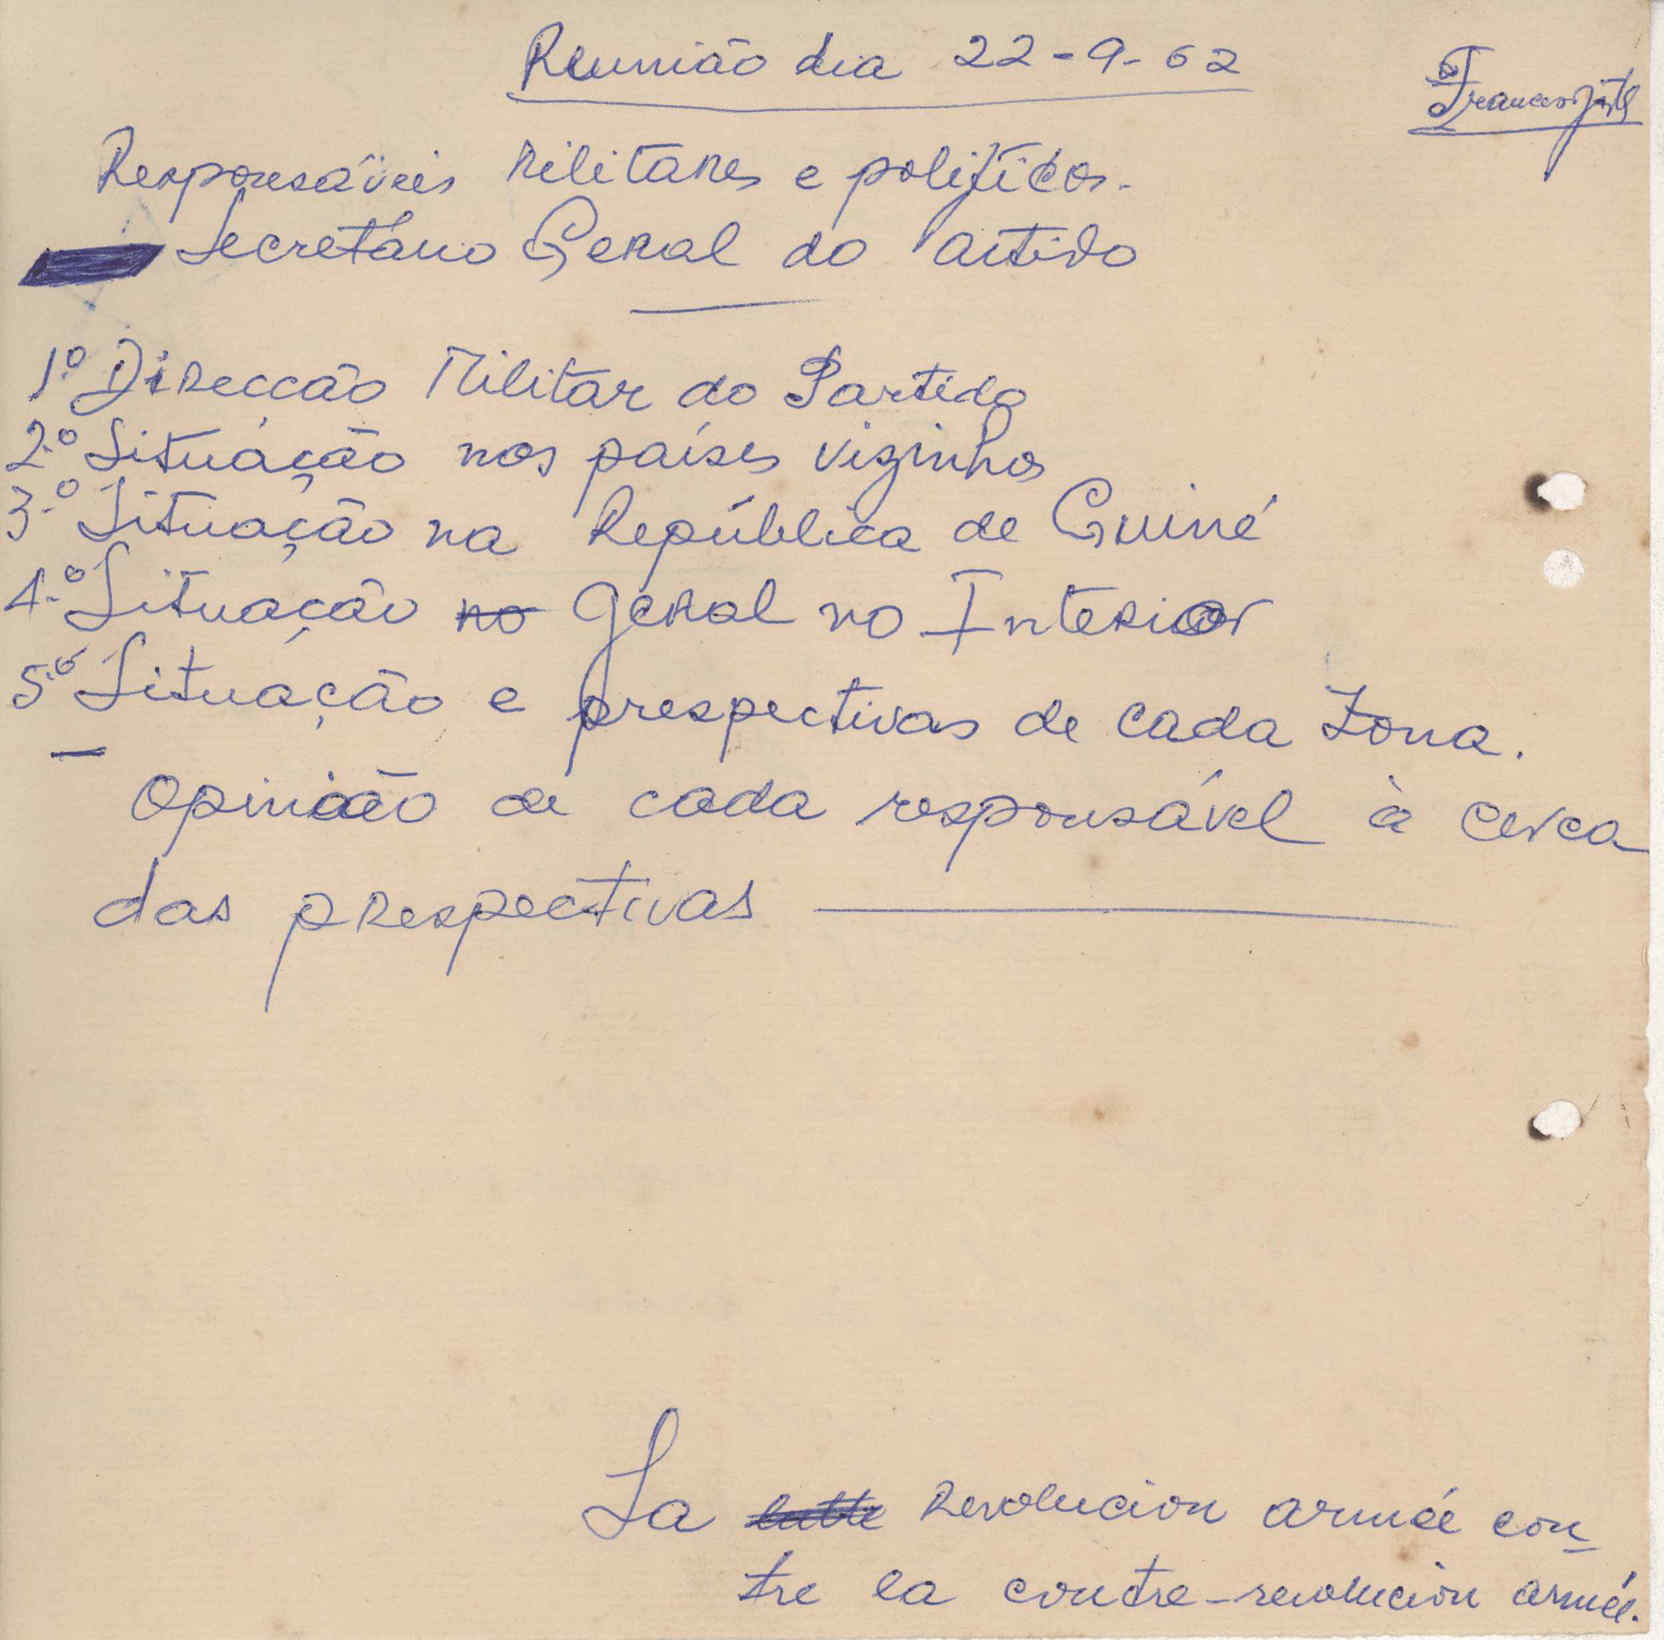 Reunião dia 22-9-62
Responsáveis Militares e políticos.
Secretário Geral do Partido
1.º Direcção Militar do Partido
2.º Situação nos países vizinhos
3.º Situação na República de Guiné
4.º Situação no Geral no Interior
5.º Situação e prespectivas de cada Zona.
Opinião de cada responsável à cerca
das prespectivas
La lutte Revolucion armée con-
tre la contre-revolucion armée.